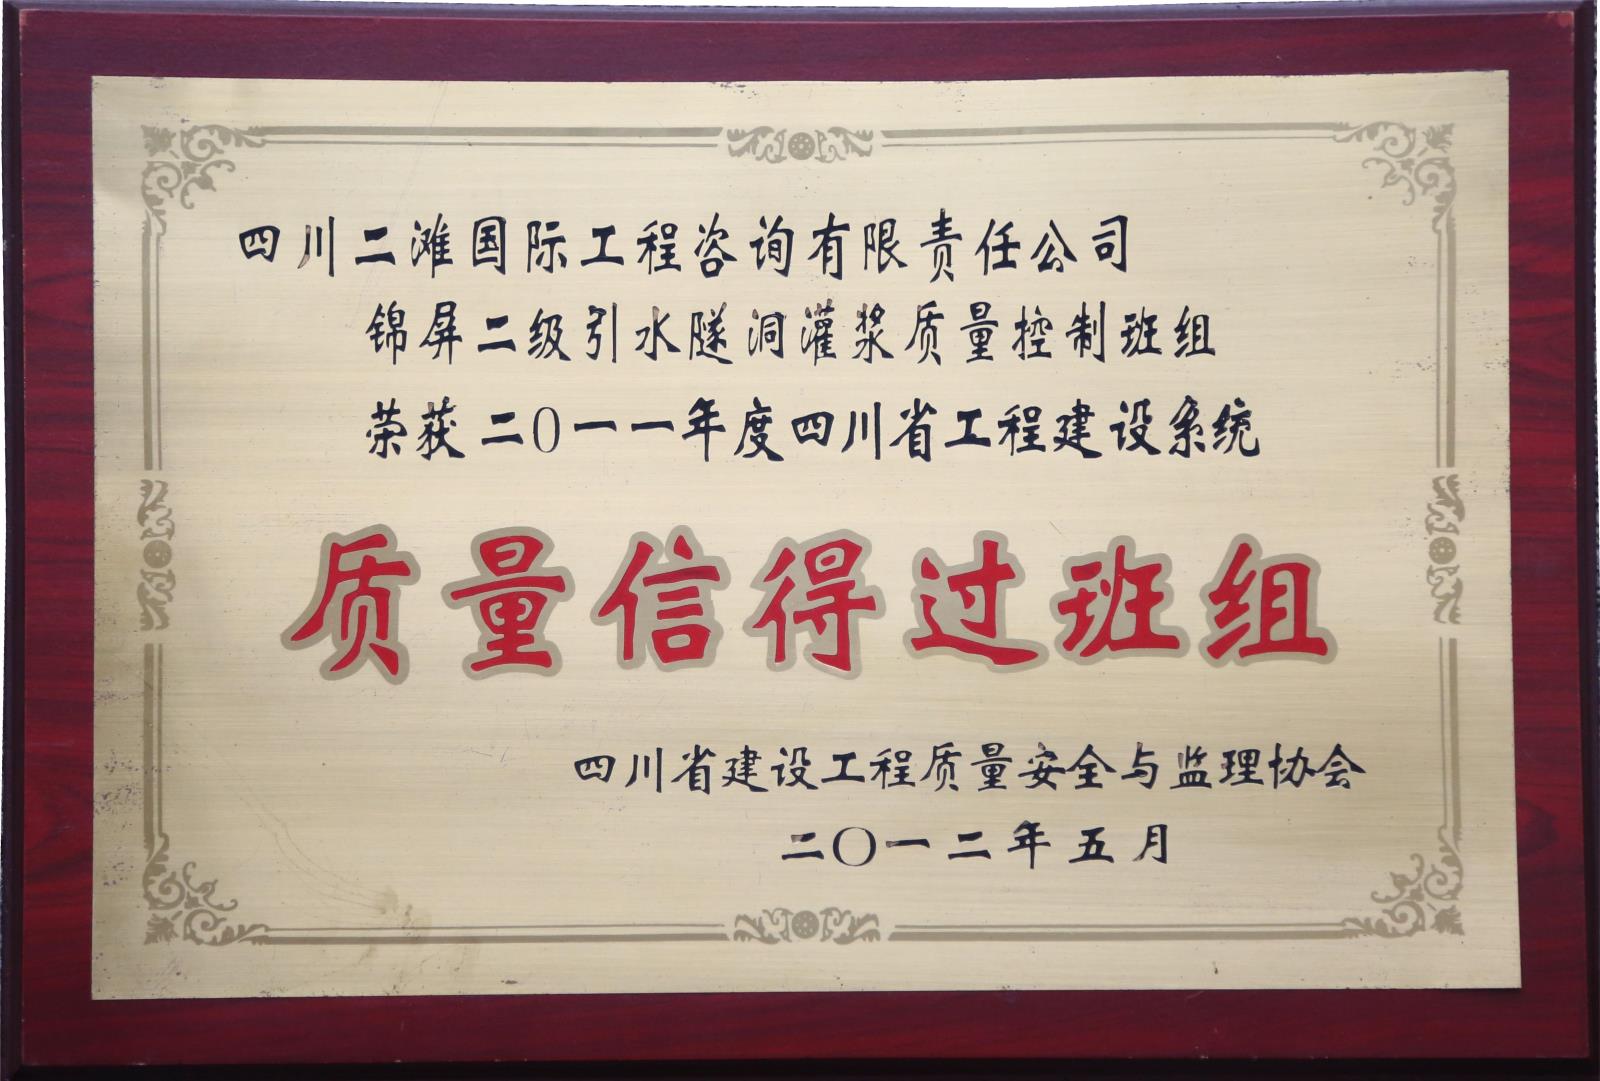 四川二滩国际工程咨询有限责任公司
锦屏二级引水隧洞灌浆质量控制班组
荣获二〇一一年度四川省工程建设系统
质量信得过班组
四川省建设工程质量安全与监理协会
二〇一二年五月